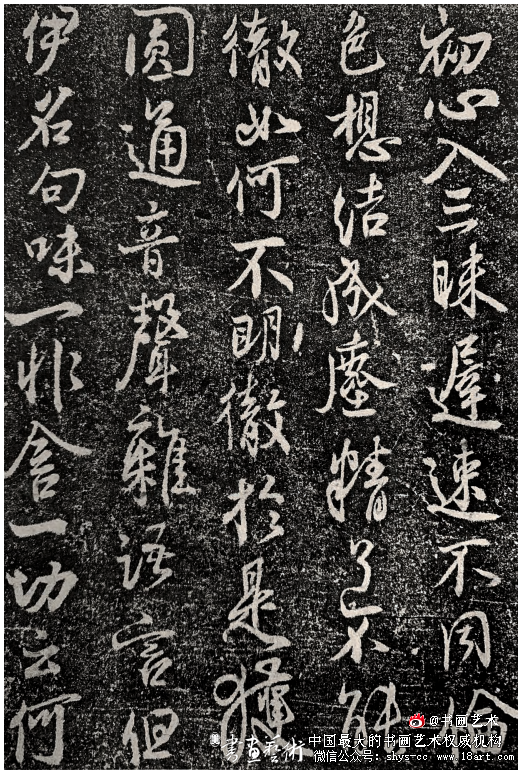 初心入三昧遲速不同倫
色想結成塵精了不能
徹如何不明徹於是獲
圓通音聲雜語言但
伊名句味一非含一切云何
@书画艺术
書畫藝術
中国最大的书画艺术权威机构
微信公众号：shys-cc www.18art.com